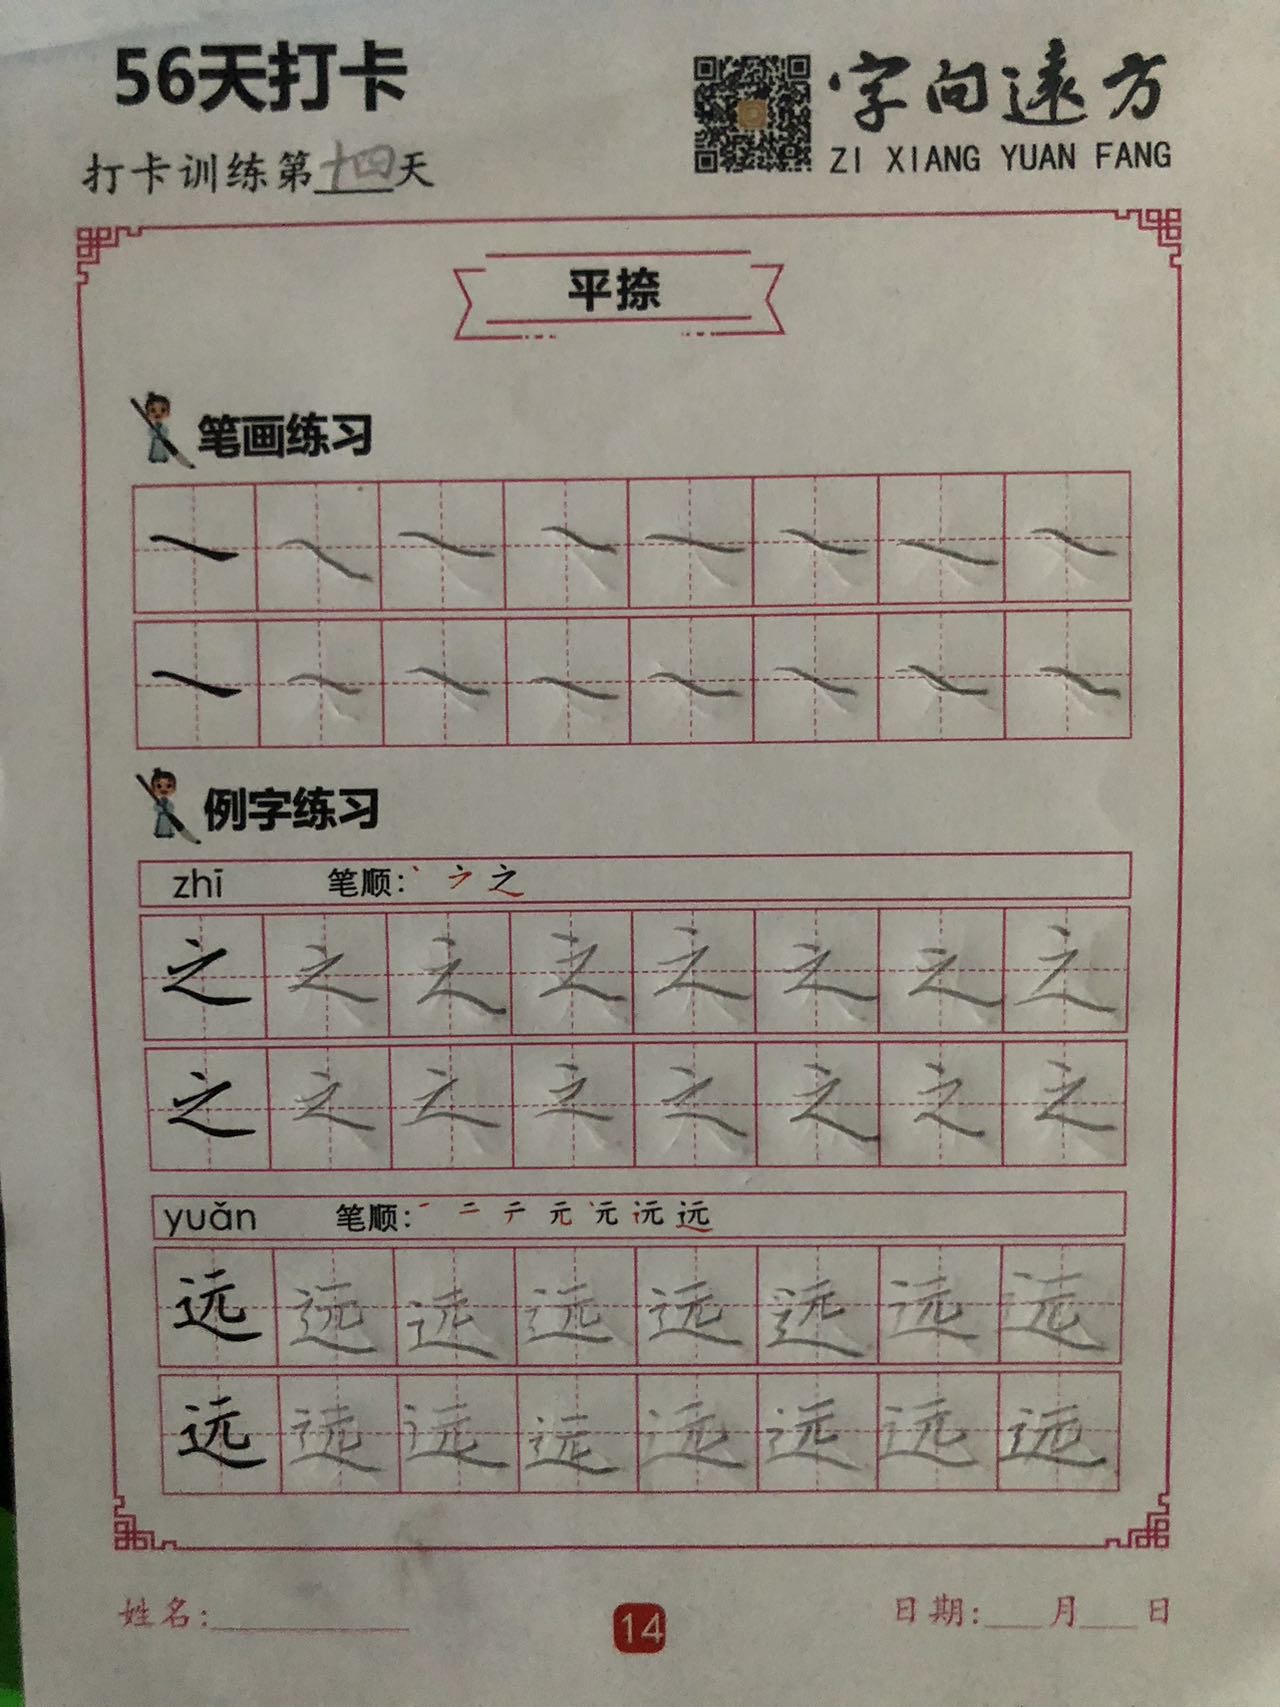 56天打卡
字向遠方
ZI XIANG YUAN FANG
打卡训练第十四天
平捺
笔画练习
例字练习
zhī 笔顺：丶 之
之 之 之 之 之 之 之 之
之 之 之 之 之 之 之 之
yuǎn 笔顺：一 二 元 远
远 远 远 远 远 远 远 远
远 远 远 远 远 远 远 远
姓名：
14
日期：___月___日